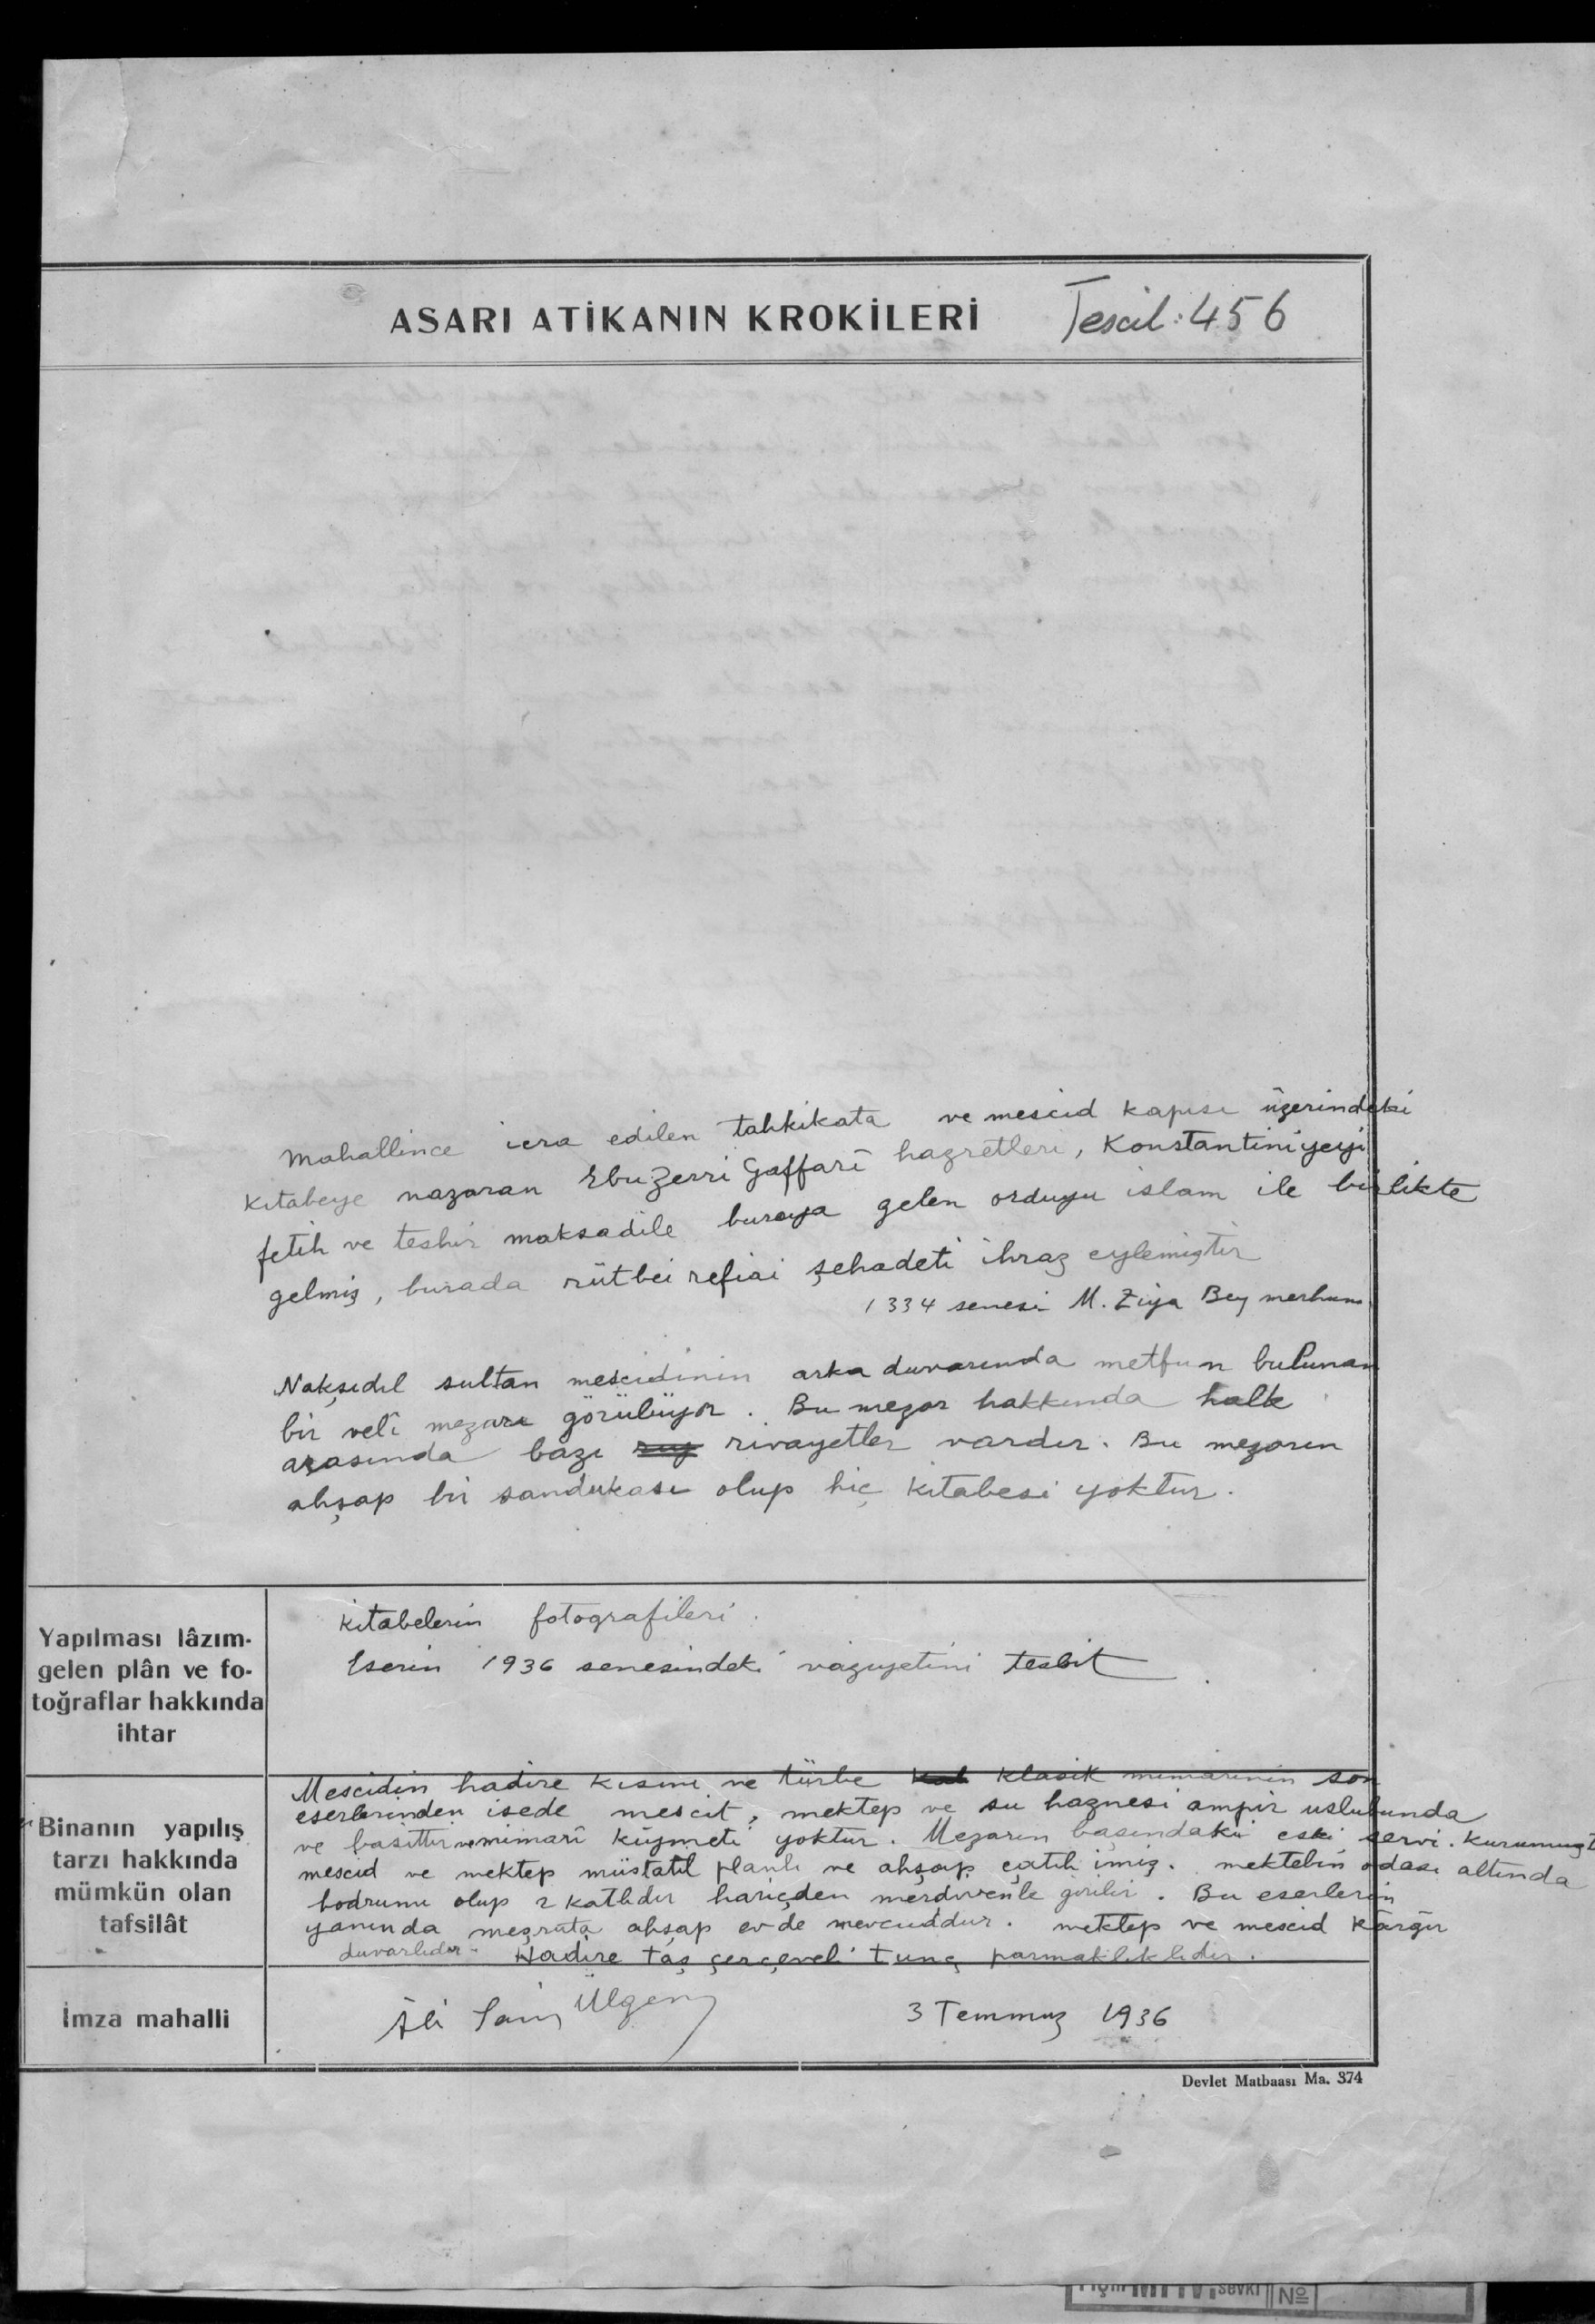 ASARI ATİKANIN KROKİLERİ Tescil: 456
Mahallince icra edilen tahkikata ve mescid kapısı üzerindeki
kitabeye nazaran Ebuzerri Gaffarî hazretleri, Konstantiniyeyi
fetih ve teshir maksadile buraya gelen orduyu islam ile birlikte
gelmiş, burada rütbei refiai şehadeti ihraz eylemiştir
1334 senesi M. Ziya Bey merhum
Nakşıdil sultan mescidinin arka duvarında metfun bulunan
bir velî mezarı görülüyor. Bu mezar hakkında halk
arasında bazı rivayetler vardır. Bu mezarın
ahşap bir sandukası olup hiç kitabesi yoktur.
Yapılması lâzım-
gelen plân ve fo-
toğraflar hakkında
ihtar
kitabelerin fotografileri.
Eserin 1936 senesindeki vaziyetini tesbit.
Binanın yapılış
tarzı hakkında
mümkün olan
tafsilât
Mescidin hadire kısmı ve türbe klasik mimarinin son
eserlerinden isede mescit, mektep ve su haznesi ampir uslubunda
ve basittir ve mimarî kıymeti yoktur. Mezarın başındaki eski servi kurumuş
mescid ve mektep müstatil planlı ve ahşap çatılı imiş. mektebin odası altında
bodrumu olup 2 katlıdır hariçden merdivenle girilir. Bu eserlerin
yanında meşruta ahşap ev de mevcuddur. mektep ve mescid kârgir
duvarlıdır. Hadire taş çerçeveli tunç parmaklıklıdır.
İmza mahalli
Ali Saim Ülgen
3 Temmuz 1936
Devlet Matbaası Ma. 374
sevki No